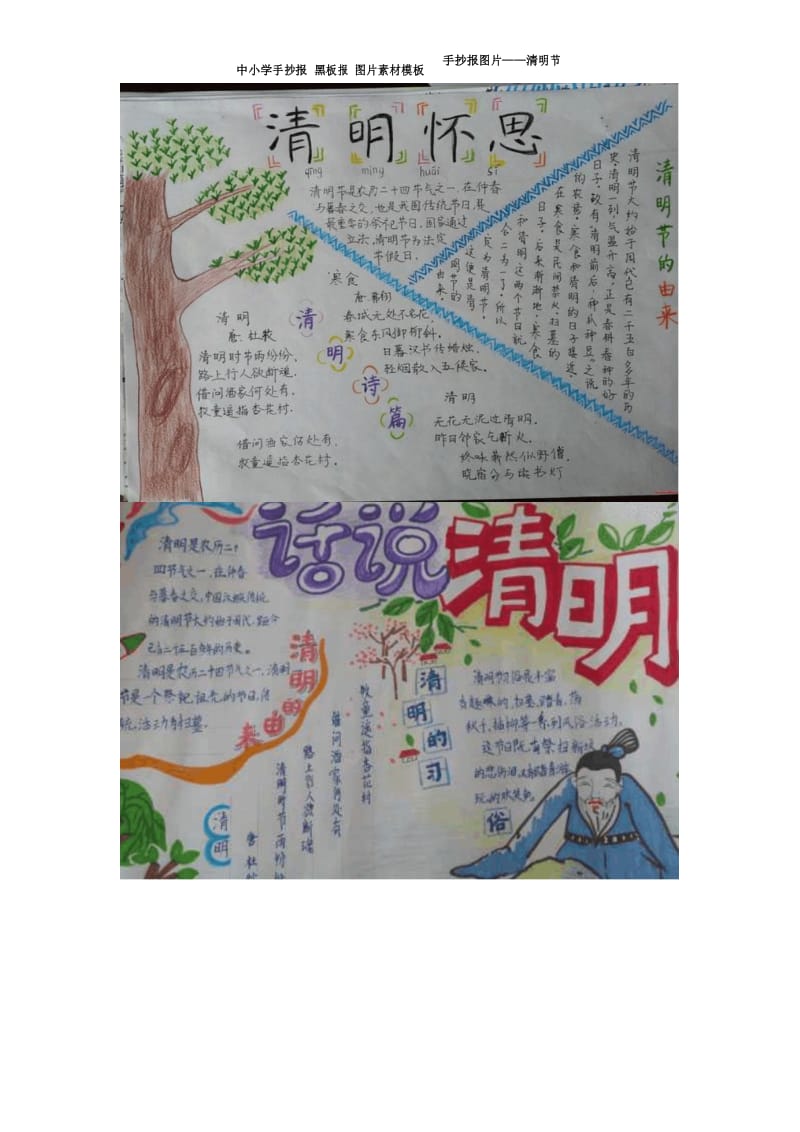 中小学手抄报 黑板报 图片素材模板
手抄报图片——清明节
清明怀思
qīng míng huái sī
清明节是农历二十四节气之一,在仲春
与暮春之交,也是我国传统节日,是
最重要的祭祀节日,国家通过
立法,清明节为法定
节假日。
清明节的由来
清明节大约始于周代已有二千五百多年的历
史,清明一到气温升高,正是春耕春种的好
日子,故有“清明前后,种瓜种豆”之说
的农赞。寒食和清明的日子接近,
在寒食是民间禁火、扫墓的
日子,后来渐渐地,寒食
和清明这两个节日就
合二为一了,所以
成为清明节,
这便是清
明节的
由来。
寒食
唐·韩翃
春城无处不飞花,
寒食东风御柳斜。
日暮汉书传蜡烛,
轻烟散入五侯家。
清明
唐·杜牧
清明时节雨纷纷,
路上行人欲断魂。
借问酒家何处有,
牧童遥指杏花村。
借问酒家何处有,
牧童遥指杏花村。
清明诗篇
清明
无花无酒过清明,
昨日邻家乞新火,
晓窗分与读书灯
话说清明
清明是农历二十
四节气之一,在仲春
与暮春之交,中国汉族传统
的清明节大约始于周代,距今
已有二千五百多年的历史。
清明是农历二十四节气之一,清明
节是一个祭祀祖先的节日,传
统活动为扫墓
清明的由来
清明
唐 杜牧
清明时节雨纷纷
路上行人欲断魂
借问酒家何处有
牧童遥指杏花村
清明的习俗
清明节习俗是丰富
有趣味的,扫墓、踏青、荡
秋千、插柳等一系列风俗活动。
这节日既有祭扫新坟
的悲伤泪,又有踏青游
玩的欢笑声